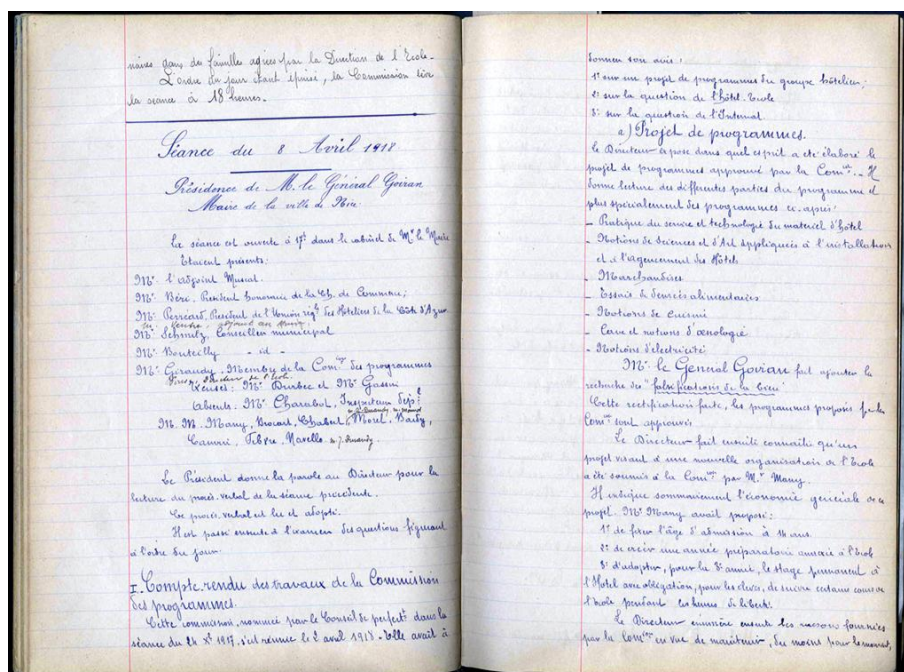 naires dans des familles agréées par la Direction de l'Ecole.
L'ordre du jour étant épuisé, la Commission lève
la séance à 18 heures.
Séance du 8 Avril 1918
Présidence de M. le Général Goiran
Maire de la ville de Nice
La séance est ouverte à 17h dans le cabinet de Mr le Maire
Etaient présents:
Mr. l'adjoint Mussat.
Mr. Béri. Président honoraire de la Ch. de Commerce;
Mr. Perrard, Président de l'Union régle des Hôteliers de la Côte d'Azur
adjoint au Maire
Mr. Schmitz, Conseiller municipal
Mr. Bouteilly - id -
Mr. Giraudy - Membre de la Comon des programmes
Directeur de l'Ecole
Excusés: Mr. Durbec et Mr. Gassin
Absents: Mr. Charabot, Inspecteur
M. M. Many, Brocart, Chabert, Morel, Barby,
Fèbre, Navello
Le Président donne la parole au Directeur pour la
lecture du procès-verbal de la séance précédente.
Le procès-verbal est lu et adopté.
Il est passé ensuite à l'examen des questions figurant
à l'ordre du jour
I. Compte-rendu des travaux de la Commission
des programmes.
Cette commission, nommée par le Conseil de perfectt dans la
séance du 24 Xbre 1917, s'est réunie le 2 avril 1918. Elle avait à
donner son avis:
1º sur un projet de programmes du groupe hôtelier;
2º sur la question de l'hôtel-Ecole
3º sur la question de l'Internat
a) Projet de programmes.
Le Directeur expose dans quel esprit a été élaboré le
projet de programmes approuvé par la Comon. Il
donne lecture des différentes parties du programme et
plus spécialement des programmes ci-après:
- Pratique du service et technologie du matériel d'hôtel
- Notions de Sciences et d'Art appliquées à l'installation
et à l'agencement des Hôtels
- Marchandises
- Essais de denrées alimentaires
- Notions de cuisine
- Cave et notions d'œnologie
- Notions d'électricité
Mr. le Général Goiran fait ajouter la
recherche des "falsifications de la bière"
Cette rectification faite, les programmes proposés par la
Comon sont approuvés
Le Directeur fait ensuite connaître qu'un
projet visant à une nouvelle organisation de l'Ecole
a été soumis à la Comon par Mr. Many.
Il indique sommairement l'économie générale de ce
projet. Mr. Many avait proposé:
1º de fixer l'âge d'admission à ans
2º de créer une année préparatoire annexée à l'Ecole
3º d'adopter, pour la 3e année, le stage permanent à
l'Hôtel avec obligation, pour les élèves, de suivre certains cours de
l'école pendant les heures de liberté.
Le Directeur énumère ensuite les raisons fournies
par la Comon en vue de maintenir, du moins pour le moment,